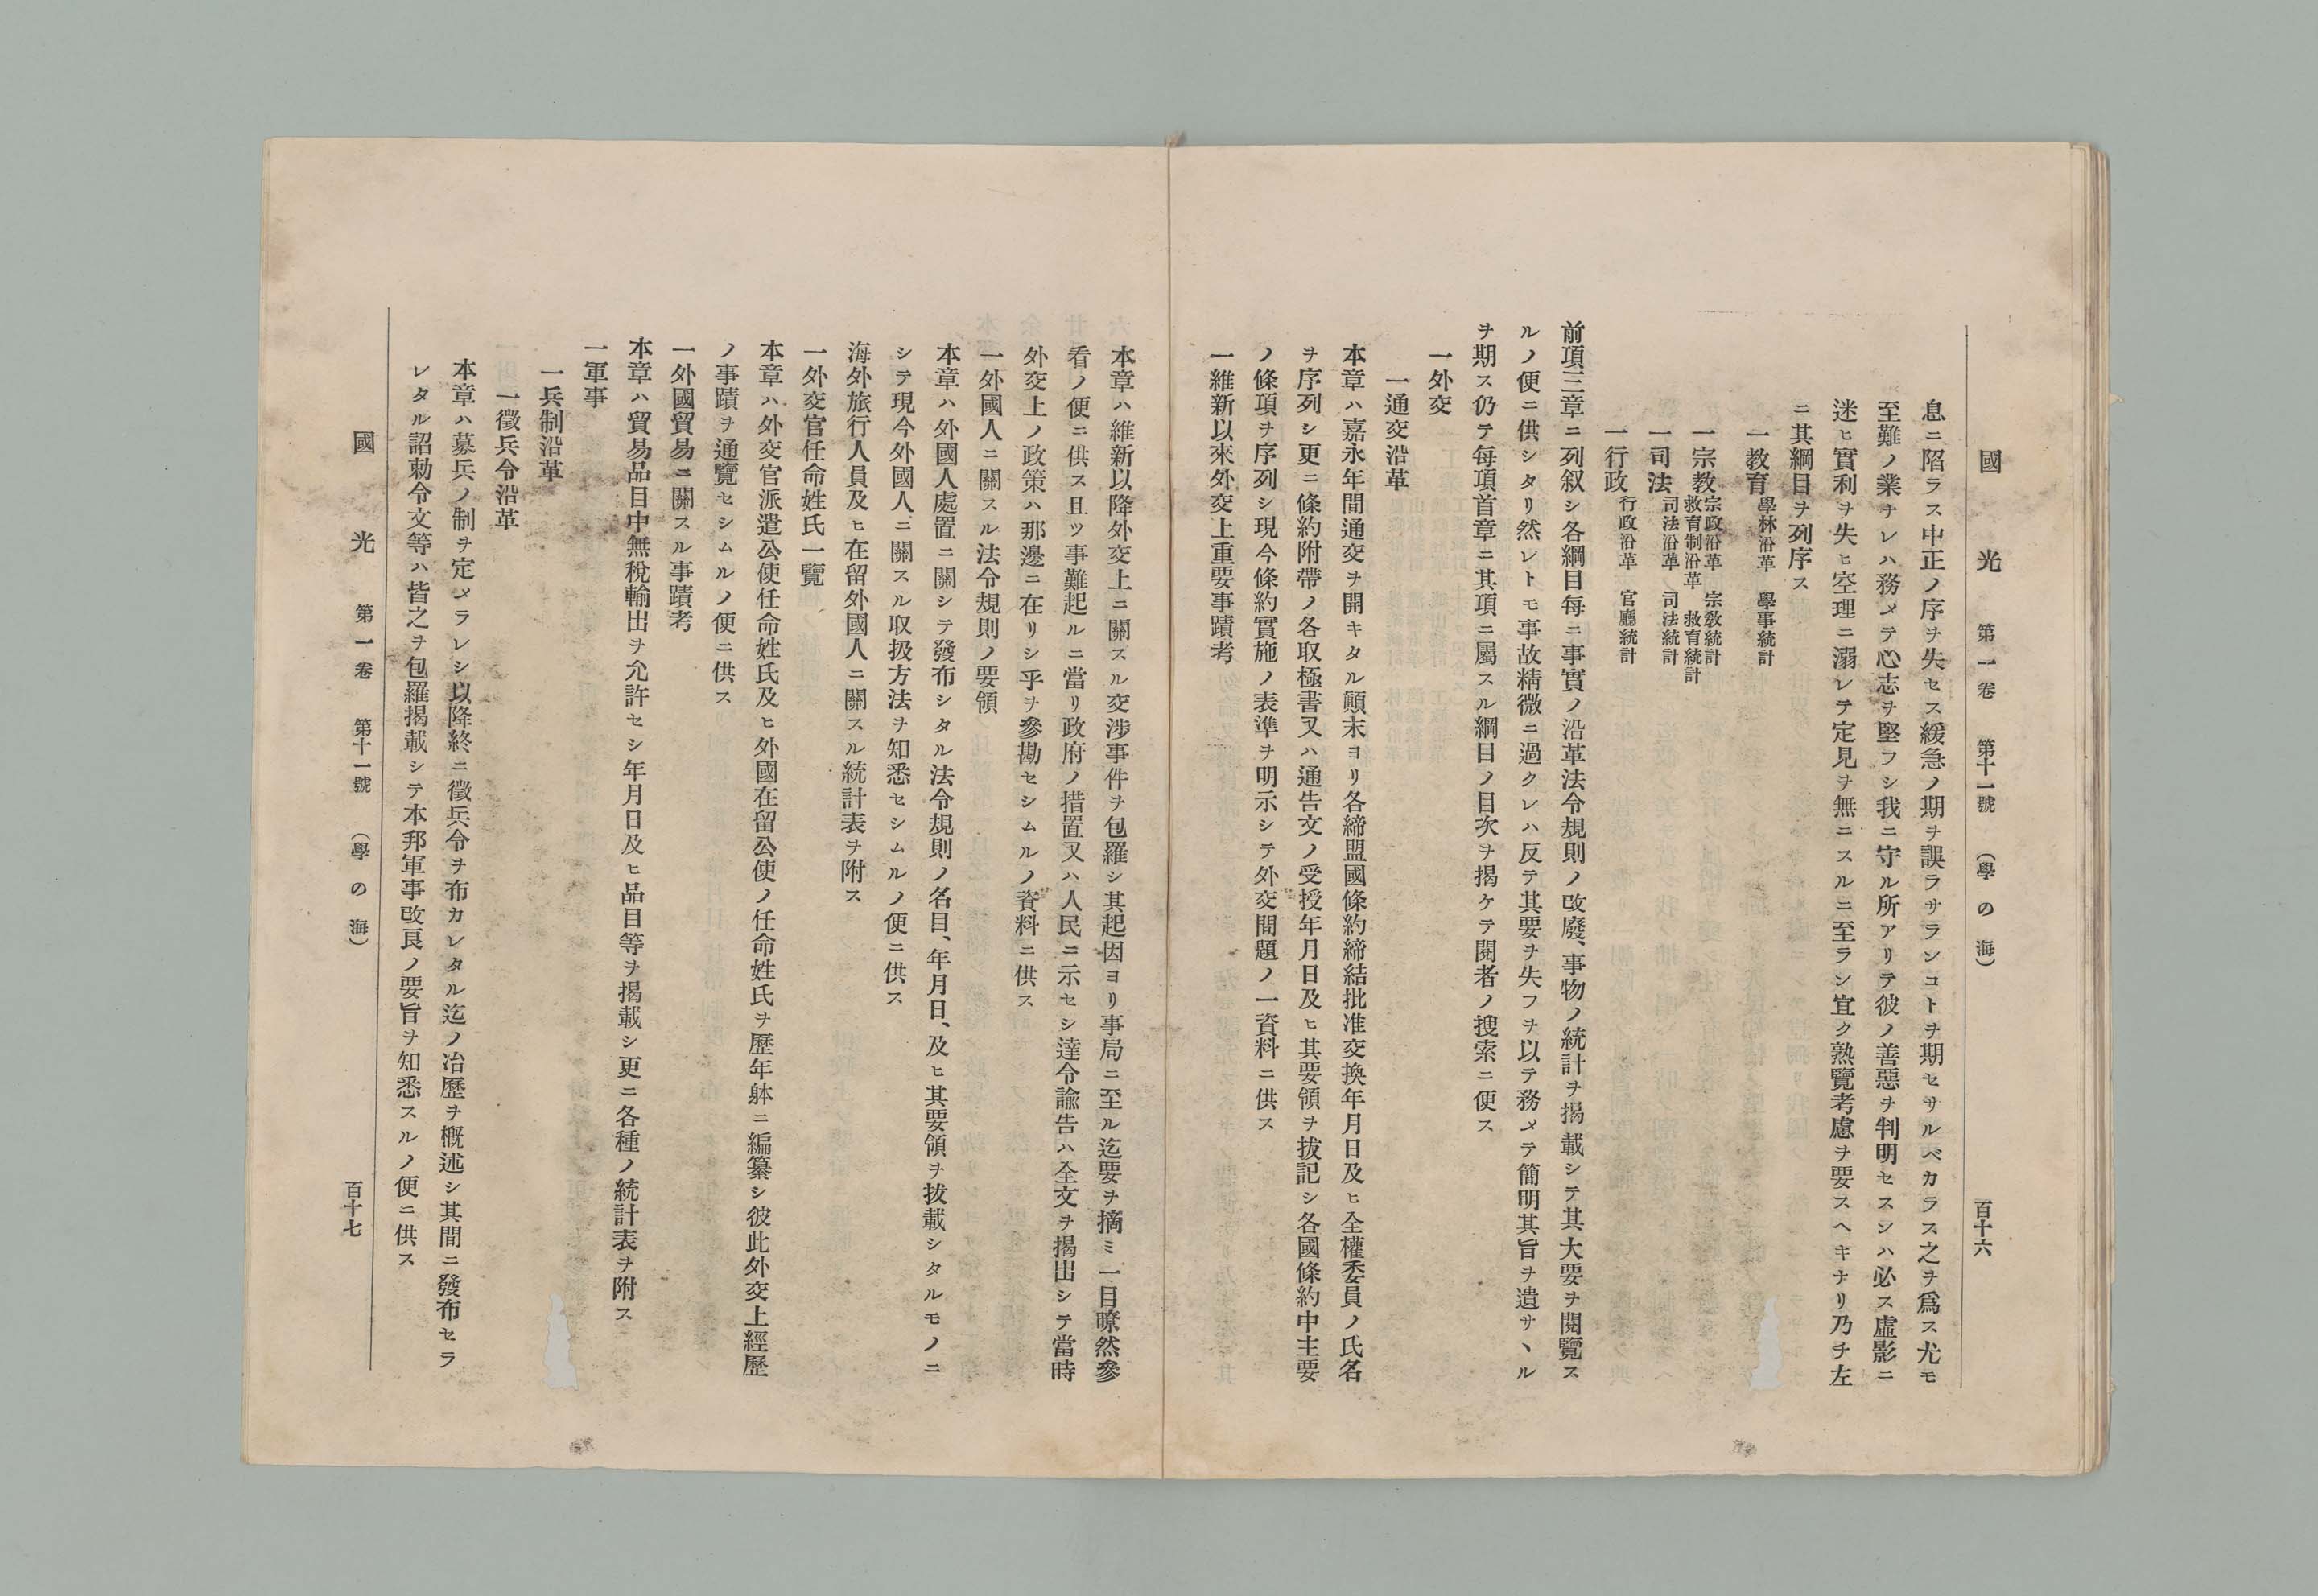 國光 第一卷 第十一號 (學の海) 百十六
息ニ陷ラス中正ノ序ヲ失セス緩急ノ期ヲ誤ラサランコトヲ期セサルベカラス之ヲ爲ス尤モ
至難ノ業ナレハ務メテ心志ヲ堅フシ我ニ守ル所アリテ彼ノ善惡ヲ判明セスシハ必ス虛影ニ
迷ヒ實利ヲ失ヒ空理ニ溺レテ定見ヲ無ニスルニ至ラン宜ク熟覽考慮ヲ要スヘキナリ乃チ左
ニ其綱目ヲ列序ス
一教育 學林沿革 學事統計
一宗教 宗政沿革 宗教統計
救育制沿革 救育統計
一司法 司法沿革 司法統計
一行政 行政沿革 官廳統計
前項三章ニ列叙シ各綱目毎ニ事實ノ沿革法令規則ノ改廢、事物ノ統計ヲ揭載シテ其大要ヲ閱覽ス
ルノ便ニ供シタリ然レトモ事故精微ニ過クレハ反テ其要ヲ失フヲ以テ務メテ簡明其旨ヲ遺サヽル
ヲ期ス仍テ每項首章ニ其項ニ屬スル綱目ノ目次ヲ揭ケテ閱者ノ搜索ニ便ス
一外交
一通交沿革
本章ハ嘉永年間通交ヲ開キタル顚末ヨリ各締盟國條約締結批准交換年月日及ヒ全權委員ノ氏名
ヲ序列シ更ニ條約附帶ノ各取極書又ハ通告文ノ受授年月日及ヒ其要領ヲ拔記シ各國條約中主要
ノ條項ヲ序列シ現今條約實施ノ表準ヲ明示シテ外交問題ノ一資料ニ供ス
一維新以來外交上重要事蹟考
本章ハ維新以降外交上ニ關スル交涉事件ヲ包羅シ其起因ヨリ事局ニ至ル迄要ヲ摘ミ一目瞭然參
看ノ便ニ供ス且ツ事難起ルニ當リ政府ノ措置又ハ人民ニ示セシ達令諭告ハ全文ヲ揭出シテ當時
外交上ノ政策ハ那邊ニ在リシ乎ヲ參勘セシムルノ資料ニ供ス
一外國人ニ關スル法令規則ノ要領
本章ハ外國人處置ニ關シテ發布シタル法令規則ノ名目、年月日、及ヒ其要領ヲ拔載シタルモノニ
シテ現今外國人ニ關スル取扱方法ヲ知悉セシムルノ便ニ供ス
海外旅行人員及ヒ在留外國人ニ關スル統計表ヲ附ス
一外交官任命姓氏一覽
本章ハ外交官派遣公使任命姓氏及ヒ外國在留公使ノ任命姓氏ヲ歷年躰ニ編纂シ彼此外交上經歷
ノ事蹟ヲ通覽セシムルノ便ニ供ス
一外國貿易ニ關スル事蹟考
本章ハ貿易品目中無稅輸出ヲ允許セシ年月日及ヒ品目等ヲ揭載シ更ニ各種ノ統計表ヲ附ス
一軍事
一兵制沿革
一徵兵令沿革
本章ハ募兵ノ制ヲ定メラレシ以降終ニ徵兵令ヲ布カレタル迄ノ冶歷ヲ概述シ其間ニ發布セラ
レタル詔勅令文等ハ皆之ヲ包羅揭載シテ本邦軍事改良ノ要旨ヲ知悉スルノ便ニ供ス
國光 第一卷 第十一號 (學の海) 百十七